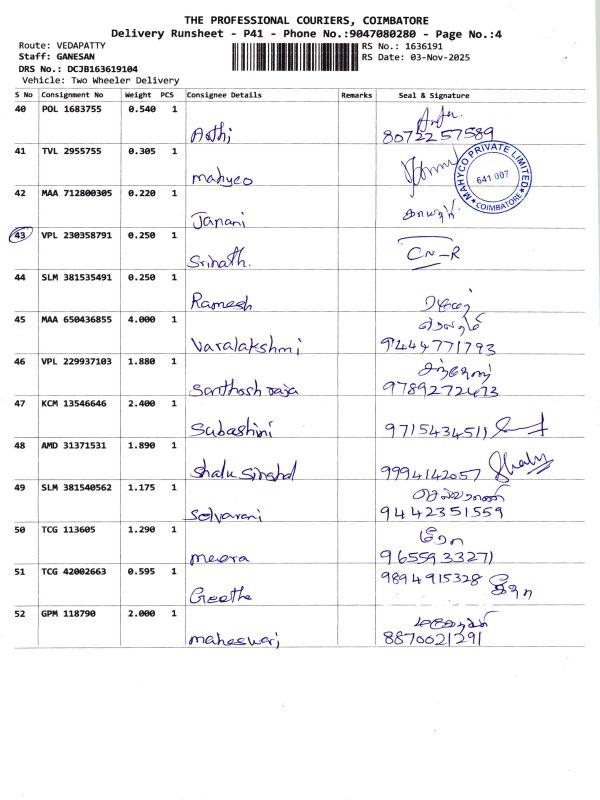 THE PROFESSIONAL COURIERS, COIMBATORE
Delivery Runsheet - P41 - Phone No.:9047080280 - Page No.:4
Route: VEDAPATTY
RS No.: 1636191
Staff: GANESAN
RS Date: 03-Nov-2025
DRS No.: DCJB163619104
Vehicle: Two Wheeler Delivery
S No Consignment No Weight PCS Consignee Details Remarks Seal & Signature
40 POL 1683755 0.540 1
Arthi 8072257589
41 TVL 2955755 0.305 1
Mahyco
MAHYCO PRIVATE LIMITED
641 007
COIMBATORE
42 MAA 712800305 0.220 1
Janani
43 VPL 230358791 0.250 1
Srinath. CN-R
44 SLM 381535491 0.250 1
Ramesh
45 MAA 650436855 4.000 1
Varalakshmi 9444771793
46 VPL 229937103 1.880 1
Santhosh raja 9789272473
47 KCM 13546646 2.400 1
Subashini 9715434511
48 AMD 31371531 1.890 1
Shalu Singhal 9994142057 Shalu
49 SLM 381540562 1.175 1
Selvarani 9442351559
50 TCG 113605 1.290 1
meera 9655933271
51 TCG 42002663 0.595 1
9894915328 கீதா
Geetha
52 GPM 118790 2.000 1
maheswari 8870021291